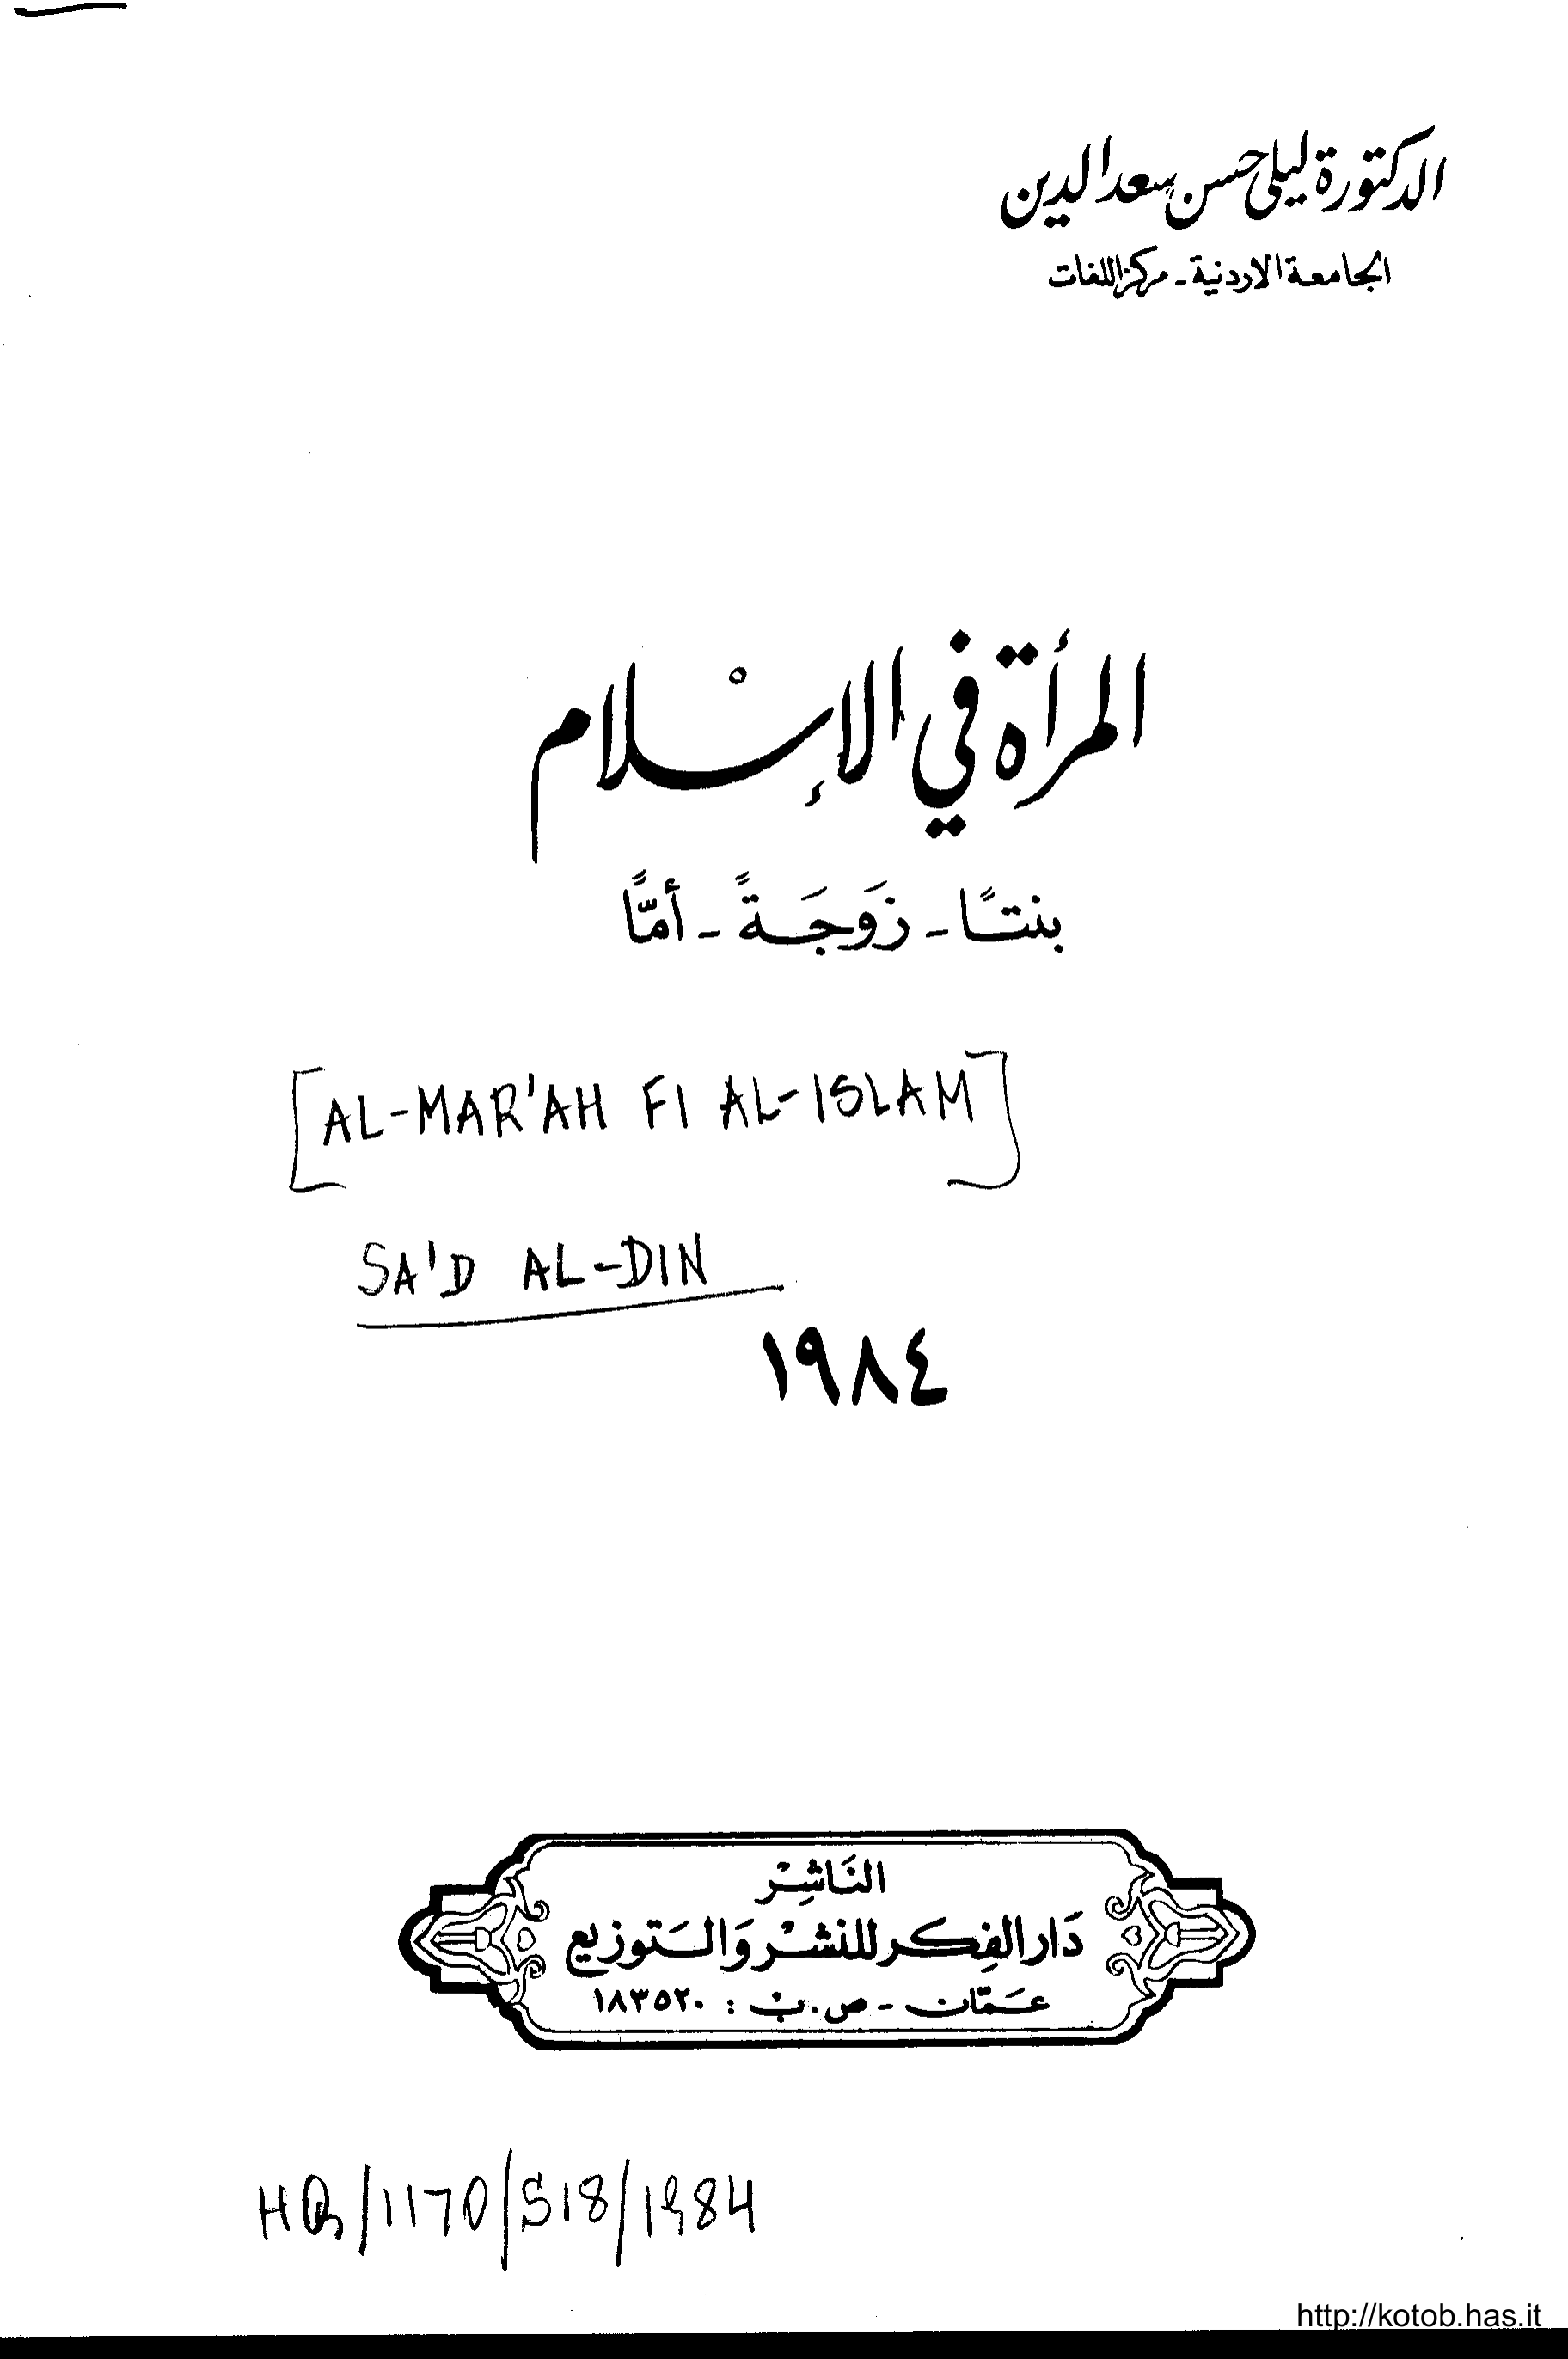 الدكتورة ليلى حسن سعد الدين
الجامعة الاردنية - مركز اللغات
المرأة في الإسْلام
بنتًا - زَوَجَةً - أمًّا
[AL-MAR'AH FI AL-ISLAM]
SA'D AL-DIN
١٩٨٤
النَاشِرْ
دَار الفِكر للنشْر وَالتَوزيع
عَمَّان - ص.ب : ١٨٣٥٢٠
HQ/1170/S18/1984
http://kotob.has.it